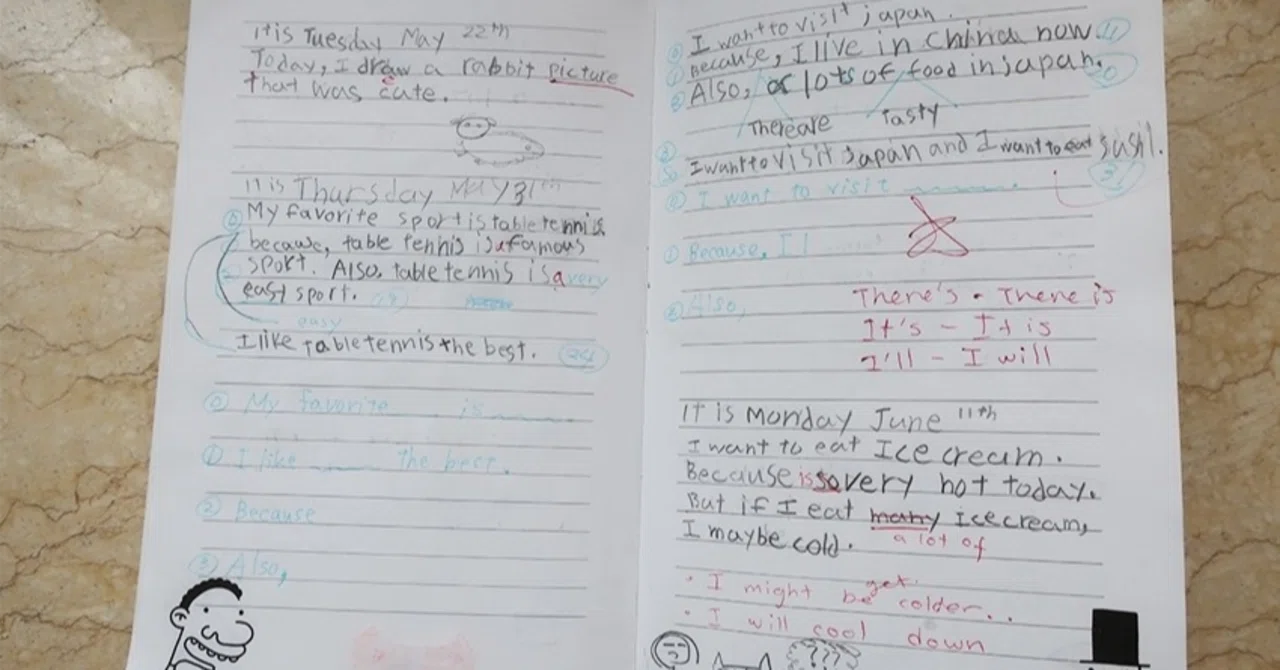 It is Tuesday May 22th
Today, I draw a rabbit picture
that was cute.
It is Thursday May 31th
⓪ My favorite sport is table tennis
becawe, table tennis is a famous
sport. Also, table tennis is a very
easy sport.
easy
I like table tennis the best. 24
⓪ My favorite ___ is ____
① I like ___ the best.
② Because
③ Also,
⓪ I want to visit japan.
① Because, I live in China now. 4
② Also, or lots of food in japan.
There are tasty
③ So I want to visit japan and I want to eat sushi.
⓪ I want to visit ______.
① Because, I
② Also,
There's - There is
It's - It is
I'll - I will
It is Monday June 11th
I want to eat Ice cream.
Because is so very hot today.
But if I eat many ice cream,
a lot of
I maybe cold.
get
• I might be colder..
• I will cool down
???